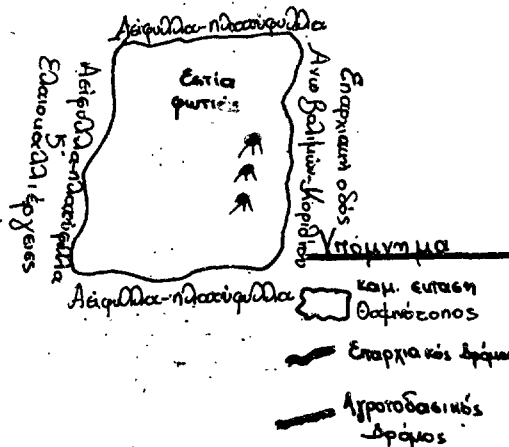 Αείφυλλα-πλατύφυλλα
Εστία
φωτιάς
Αείφυλλα-πλατύφυλλα
&
Ελαιοκαλλιέργειες
Επαρχιακή οδός
Άνω Βαλιμών-
Αείφυλλα-πλατύφυλλα
Υπόμνημα
καμ. έκταση
Θαμνότοπος
Επαρχιακός Δρόμο
Αγροτοδασικός
Δρόμος